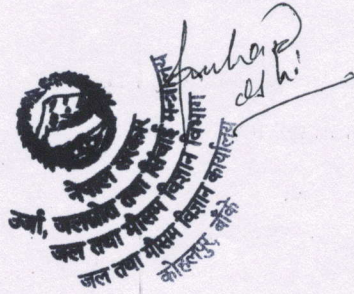 नेपाल सरकार
उर्जा, जलस्रोत तथा सिंचाई मन्त्रालय
जल तथा मौसम विज्ञान विभाग
जल तथा मौसम विज्ञान कार्यालय
कोहलपुर, बाँके